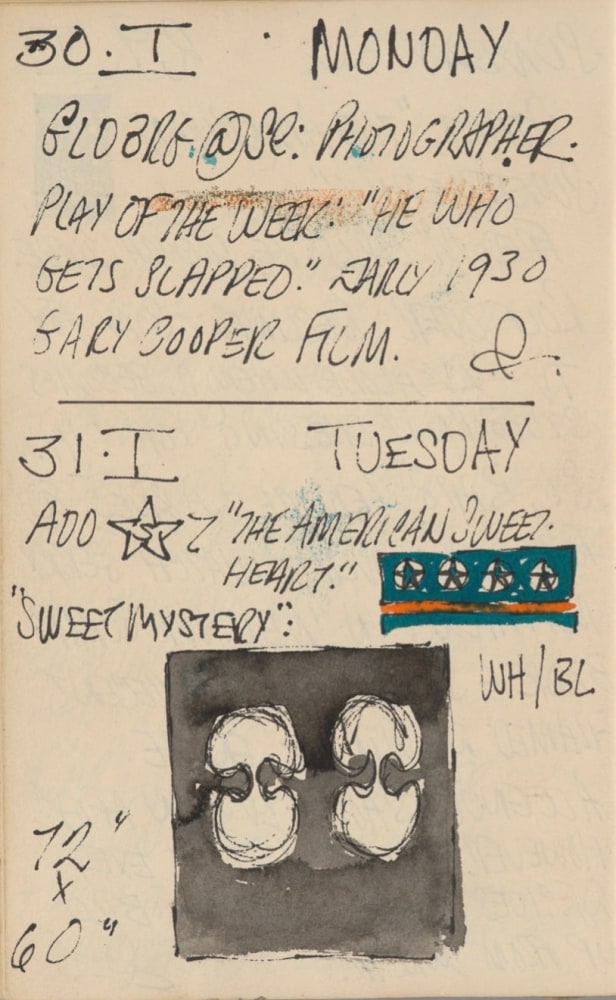 30.I · MONDAY
PHOTOGRAPHER.
PLAY OF THE WEEK: "HE WHO
GETS SLAPPED." EARLY 1930
GARY COOPER FILM. &.
31.I TUESDAY
ADD "THE AMERICAN SWEET-
HEART."
"SWEET MYSTERY":
WH/BL
72"
X
60"